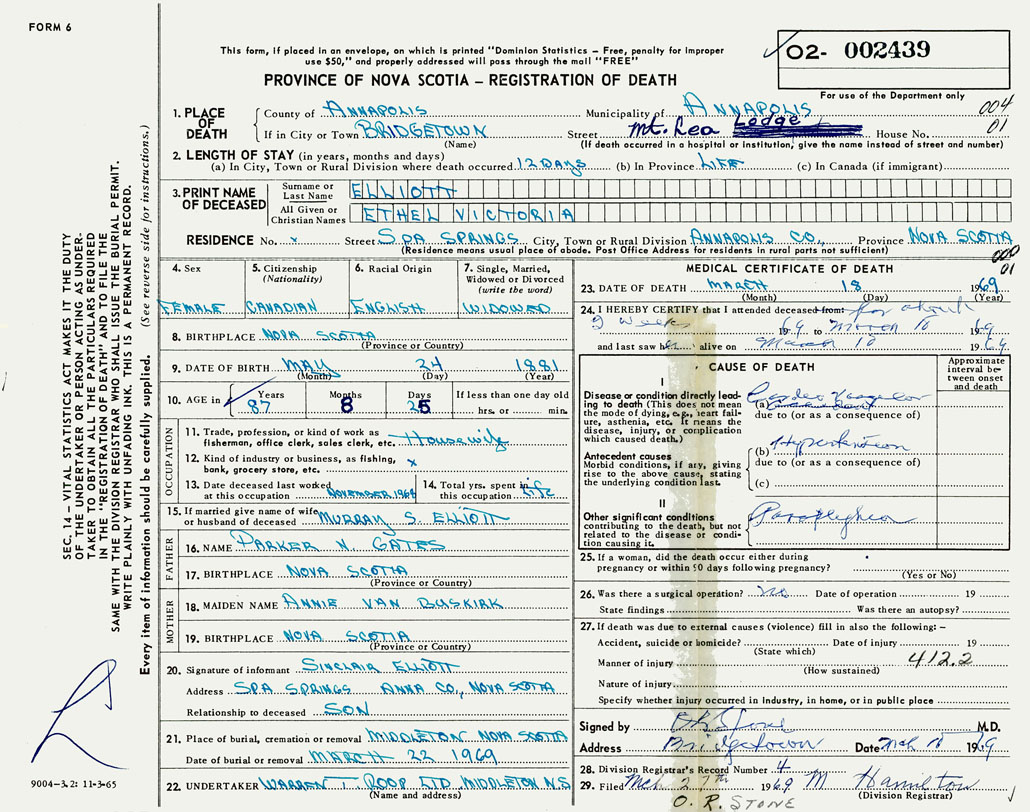 FORM 6
This form, if placed in an envelope, on which is printed "Dominion Statistics – Free, penalty for improper
use $50," and properly addressed will pass through the mail "FREE"
PROVINCE OF NOVA SCOTIA – REGISTRATION OF DEATH
02- 002439
For use of the Department only
004
01
1. PLACE OF DEATH
County of ANNAPOLIS Municipality of ANNAPOLIS
If in City or Town BRIDGETOWN Street Mt. Lea Lodge House No.
(Name) (If death occurred in a hospital or institution, give the name instead of street and number)
2. LENGTH OF STAY (in years, months and days)
(a) In City, Town or Rural Division where death occurred 12 DAYS (b) In Province LIFE (c) In Canada (if immigrant)
3. PRINT NAME OF DECEASED
Surname or Last Name ELLIOTT
All Given or Christian Names ETHEL VICTORIA
RESIDENCE No. x Street SPA SPRINGS City, Town or Rural Division ANNAPOLIS CO., Province NOVA SCOTIA
(Residence means usual place of abode. Post Office Address for residents in rural parts not sufficient)
000
01
4. Sex
FEMALE
5. Citizenship
(Nationality)
CANADIAN
6. Racial Origin
ENGLISH
7. Single, Married,
Widowed or Divorced
(write the word)
WIDOWED
8. BIRTHPLACE NOVA SCOTIA
(Province or Country)
9. DATE OF BIRTH MAY 24 1881
(Month) (Day) (Year)
10. AGE in
Years Months Days If less than one day old
87 8 25 hrs. or min.
OCCUPATION
11. Trade, profession, or kind of work as
fisherman, office clerk, sales clerk, etc. Housewife
12. Kind of industry or business, as fishing,
bank, grocery store, etc. x
13. Date deceased last worked
at this occupation NOVEMBER 1968
14. Total yrs. spent in
this occupation Life
15. If married give name of wife
or husband of deceased MURRAY S. ELLIOTT
FATHER
16. NAME PARKER N. GATES
17. BIRTHPLACE NOVA SCOTIA
(Province or Country)
MOTHER
18. MAIDEN NAME ANNIE VAN BUSKIRK
19. BIRTHPLACE NOVA SCOTIA
(Province or Country)
20. Signature of informant SINCLAIR ELLIOTT
Address SPA SPRINGS ANNA CO., NOVA SCOTIA
Relationship to deceased SON
21. Place of burial, cremation or removal MIDDLETON NOVA SCOTIA
Date of burial or removal MARCH 22 1969
22. UNDERTAKER WARREN T. ROOP LTD. MIDDLETON N.S.
(Name and address)
MEDICAL CERTIFICATE OF DEATH
23. DATE OF DEATH MARCH 18 1969
(Month) (Day) (Year)
24. I HEREBY CERTIFY that I attended deceased from: for about
weeks 1969 to 1969
and last saw her alive on March 1969
CAUSE OF DEATH
Approximate
interval be-
tween onset
and death
I
Disease or condition directly lead-
ing to death (This does not mean
the mode of dying, e.g., heart fail-
ure, asthenia, etc. It means the
disease, injury, or complication
which caused death.)
(a)
due to (or as a consequence of)
Antecedent causes
Morbid conditions, if any, giving
rise to the above cause, stating
the underlying condition last.
(b) Hypertension
due to (or as a consequence of)
(c)
II
Other significant conditions
contributing to the death, but not
related to the disease or condi-
tion causing it.
25. If a woman, did the death occur either during
pregnancy or within 90 days following pregnancy?
(Yes or No)
26. Was there a surgical operation? no Date of operation 19
State findings Was there an autopsy?
27. If death was due to external causes (violence) fill in also the following: –
Accident, suicide or homicide? Date of injury 19
(State which)
412.2
Manner of injury
(How sustained)
Nature of injury
Specify whether injury occurred in Industry, in home, or in public place
Signed by Stone M.D.
Address Bridgetown Date 1969
28. Division Registrar's Record Number 4
29. Filed Mch 27th 1969 M Hamilton
(Division Registrar)
O. R. STONE
SEC. 14 – VITAL STATISTICS ACT MAKES IT THE DUTY
OF THE UNDERTAKER OR PERSON ACTING AS UNDER-
TAKER TO OBTAIN ALL THE PARTICULARS REQUIRED
IN THE "REGISTRATION OF DEATH" AND TO FILE THE
SAME WITH THE DIVISION REGISTRAR WHO SHALL ISSUE THE BURIAL PERMIT.
WRITE PLAINLY WITH UNFADING INK. THIS IS A PERMANENT RECORD.
Every item of information should be carefully supplied. (See reverse side for instructions.)
9004-3.2: 11-3-65